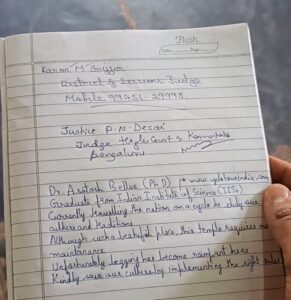 Flash
Date Page
Karan M
District & Sessions Judge
Mobile 99451-29998
Justice P.N. Desai
Judge High Court of Karnataka
Bengaluru
Dr. (Ph.D) www.
Graduate from Indian Institute of Science (IISc)
Currently travelling the nation on a cycle to study our
culture and traditions
Although such a beautiful place, this temple requires
maintenance
Unfortunately begging has become rampant here.
Kindly save our culture by implementing the right rules